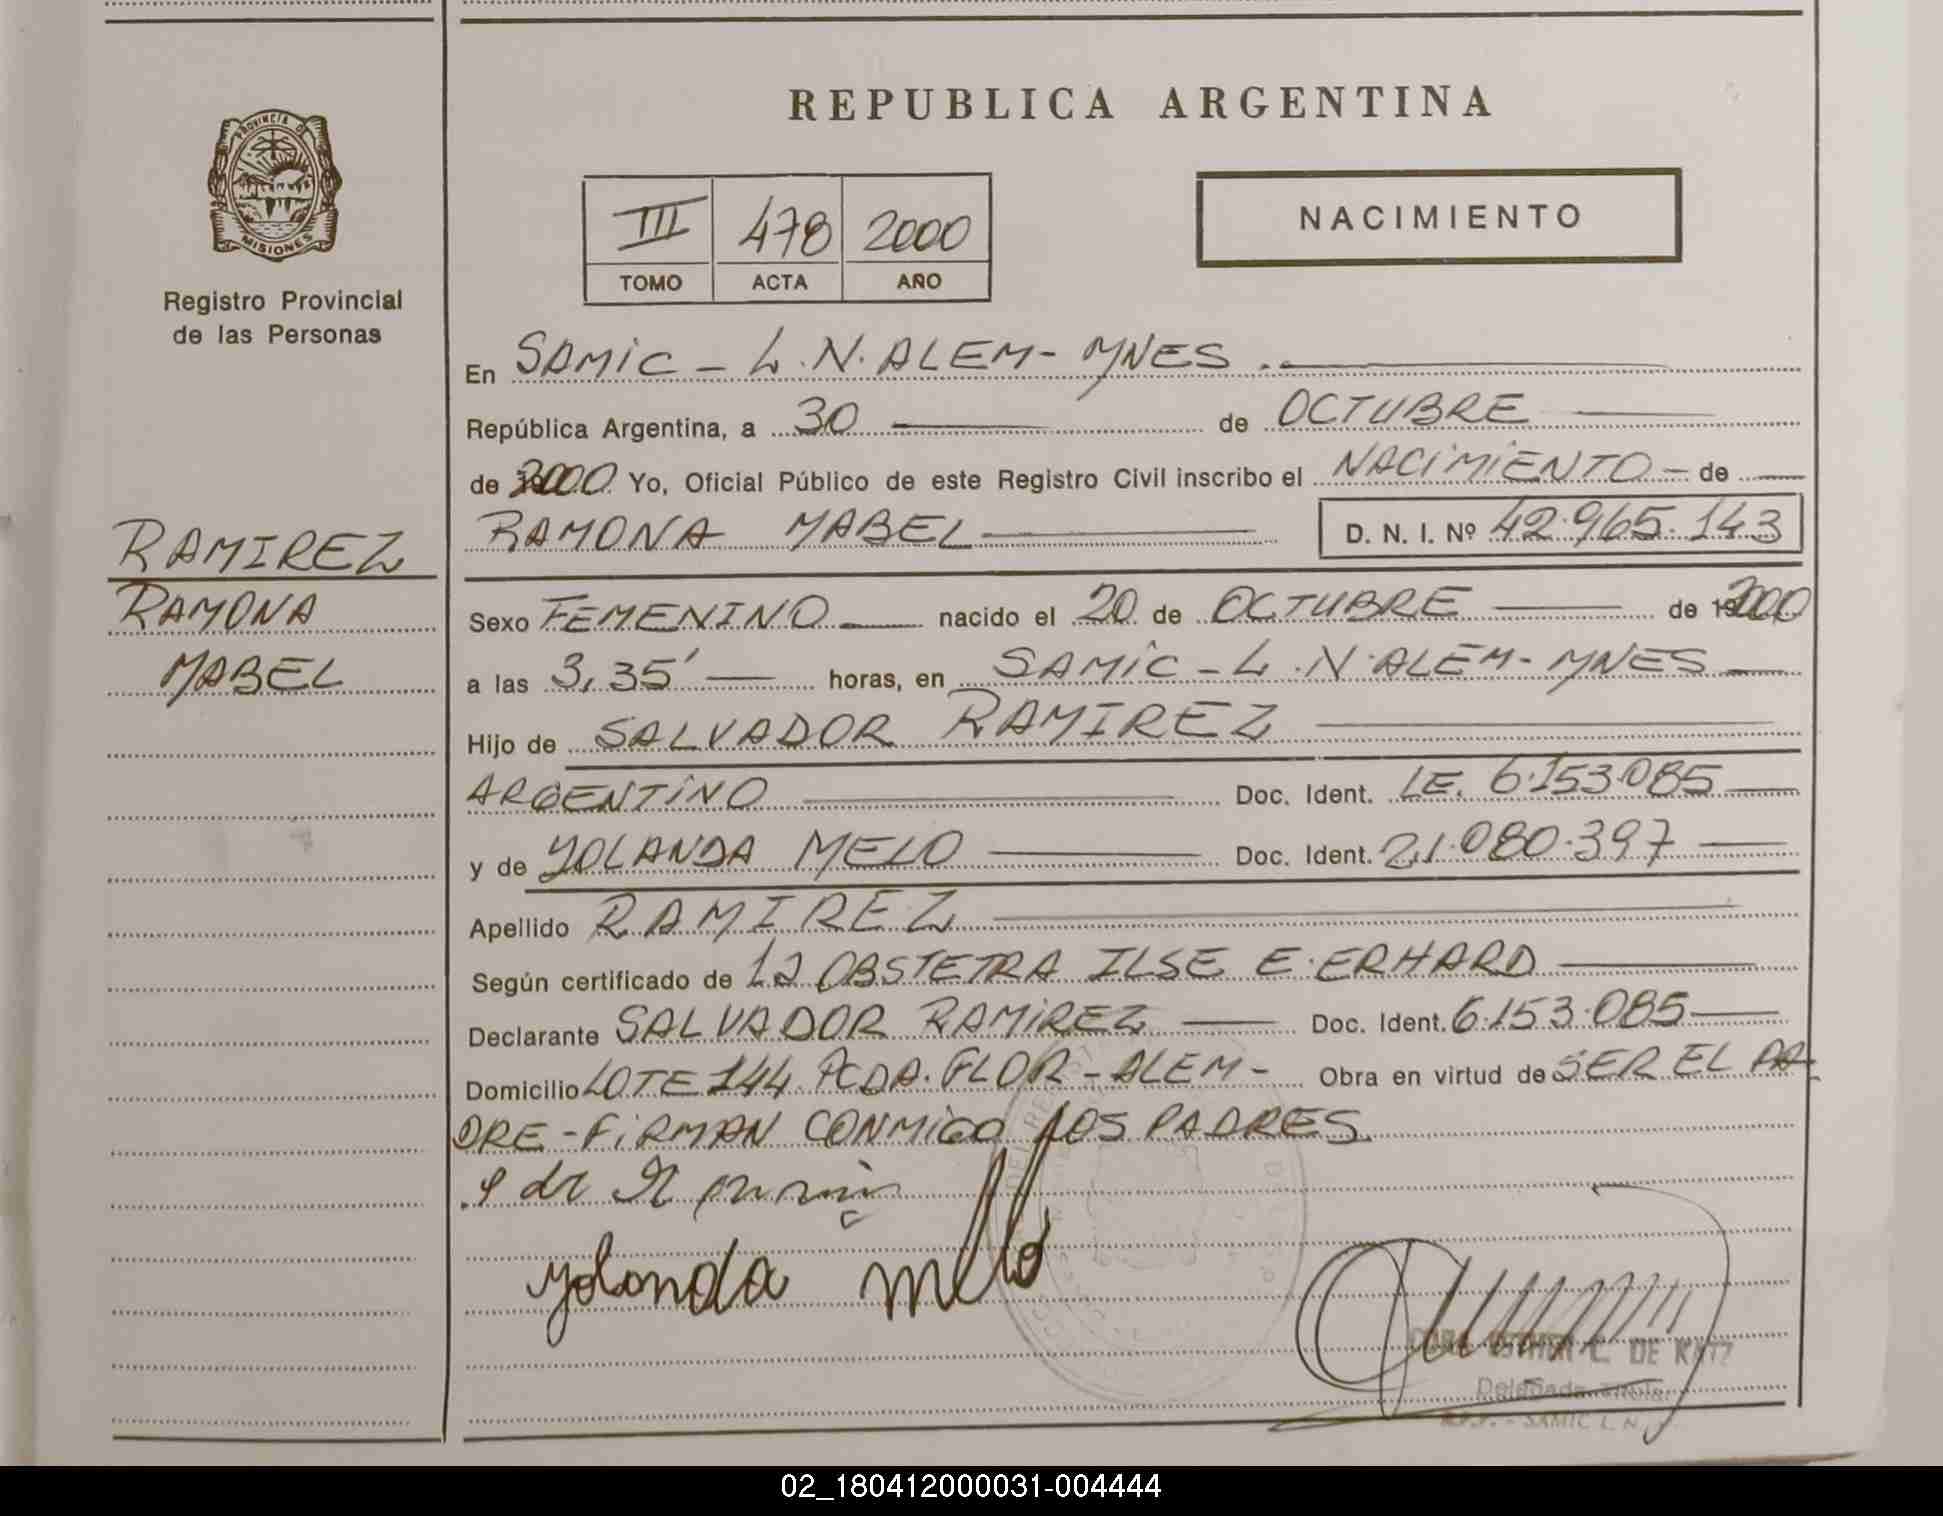 REPUBLICA ARGENTINA
PROVINCIA DE
MISIONES
Registro Provincial
de las Personas
III 478 2000
TOMO ACTA AÑO
NACIMIENTO
En SAMIC - L.N. ALEM - MNES.
República Argentina, a 30 de OCTUBRE
de 2000 Yo, Oficial Público de este Registro Civil inscribo el NACIMIENTO - de
RAMIREZ
RAMONA
MABEL
RAMONA MABEL D. N. I. Nº 42.965.143
Sexo FEMENINO nacido el 20 de OCTUBRE de 2000
a las 3,35' horas, en SAMIC - L.N. ALEM - MNES
Hijo de SALVADOR RAMIREZ
ARGENTINO Doc. Ident. LE. 6.153.085
y de YOLANDA MELO Doc. Ident. 21.080.397
Apellido RAMIREZ
Según certificado de LA OBSTETRA ILSE E. ERHARD
Declarante SALVADOR RAMIREZ Doc. Ident. 6.153.085
Domicilio LOTE 144 PCDA. FLOR - ALEM - Obra en virtud de SER EL PA-
DRE - FIRMAN CONMIGO LOS PADRES.
yolanda melo
ESTHER C. DE KATZ
Delegada Titular
SAMIC L. N.
02_180412000031-004444